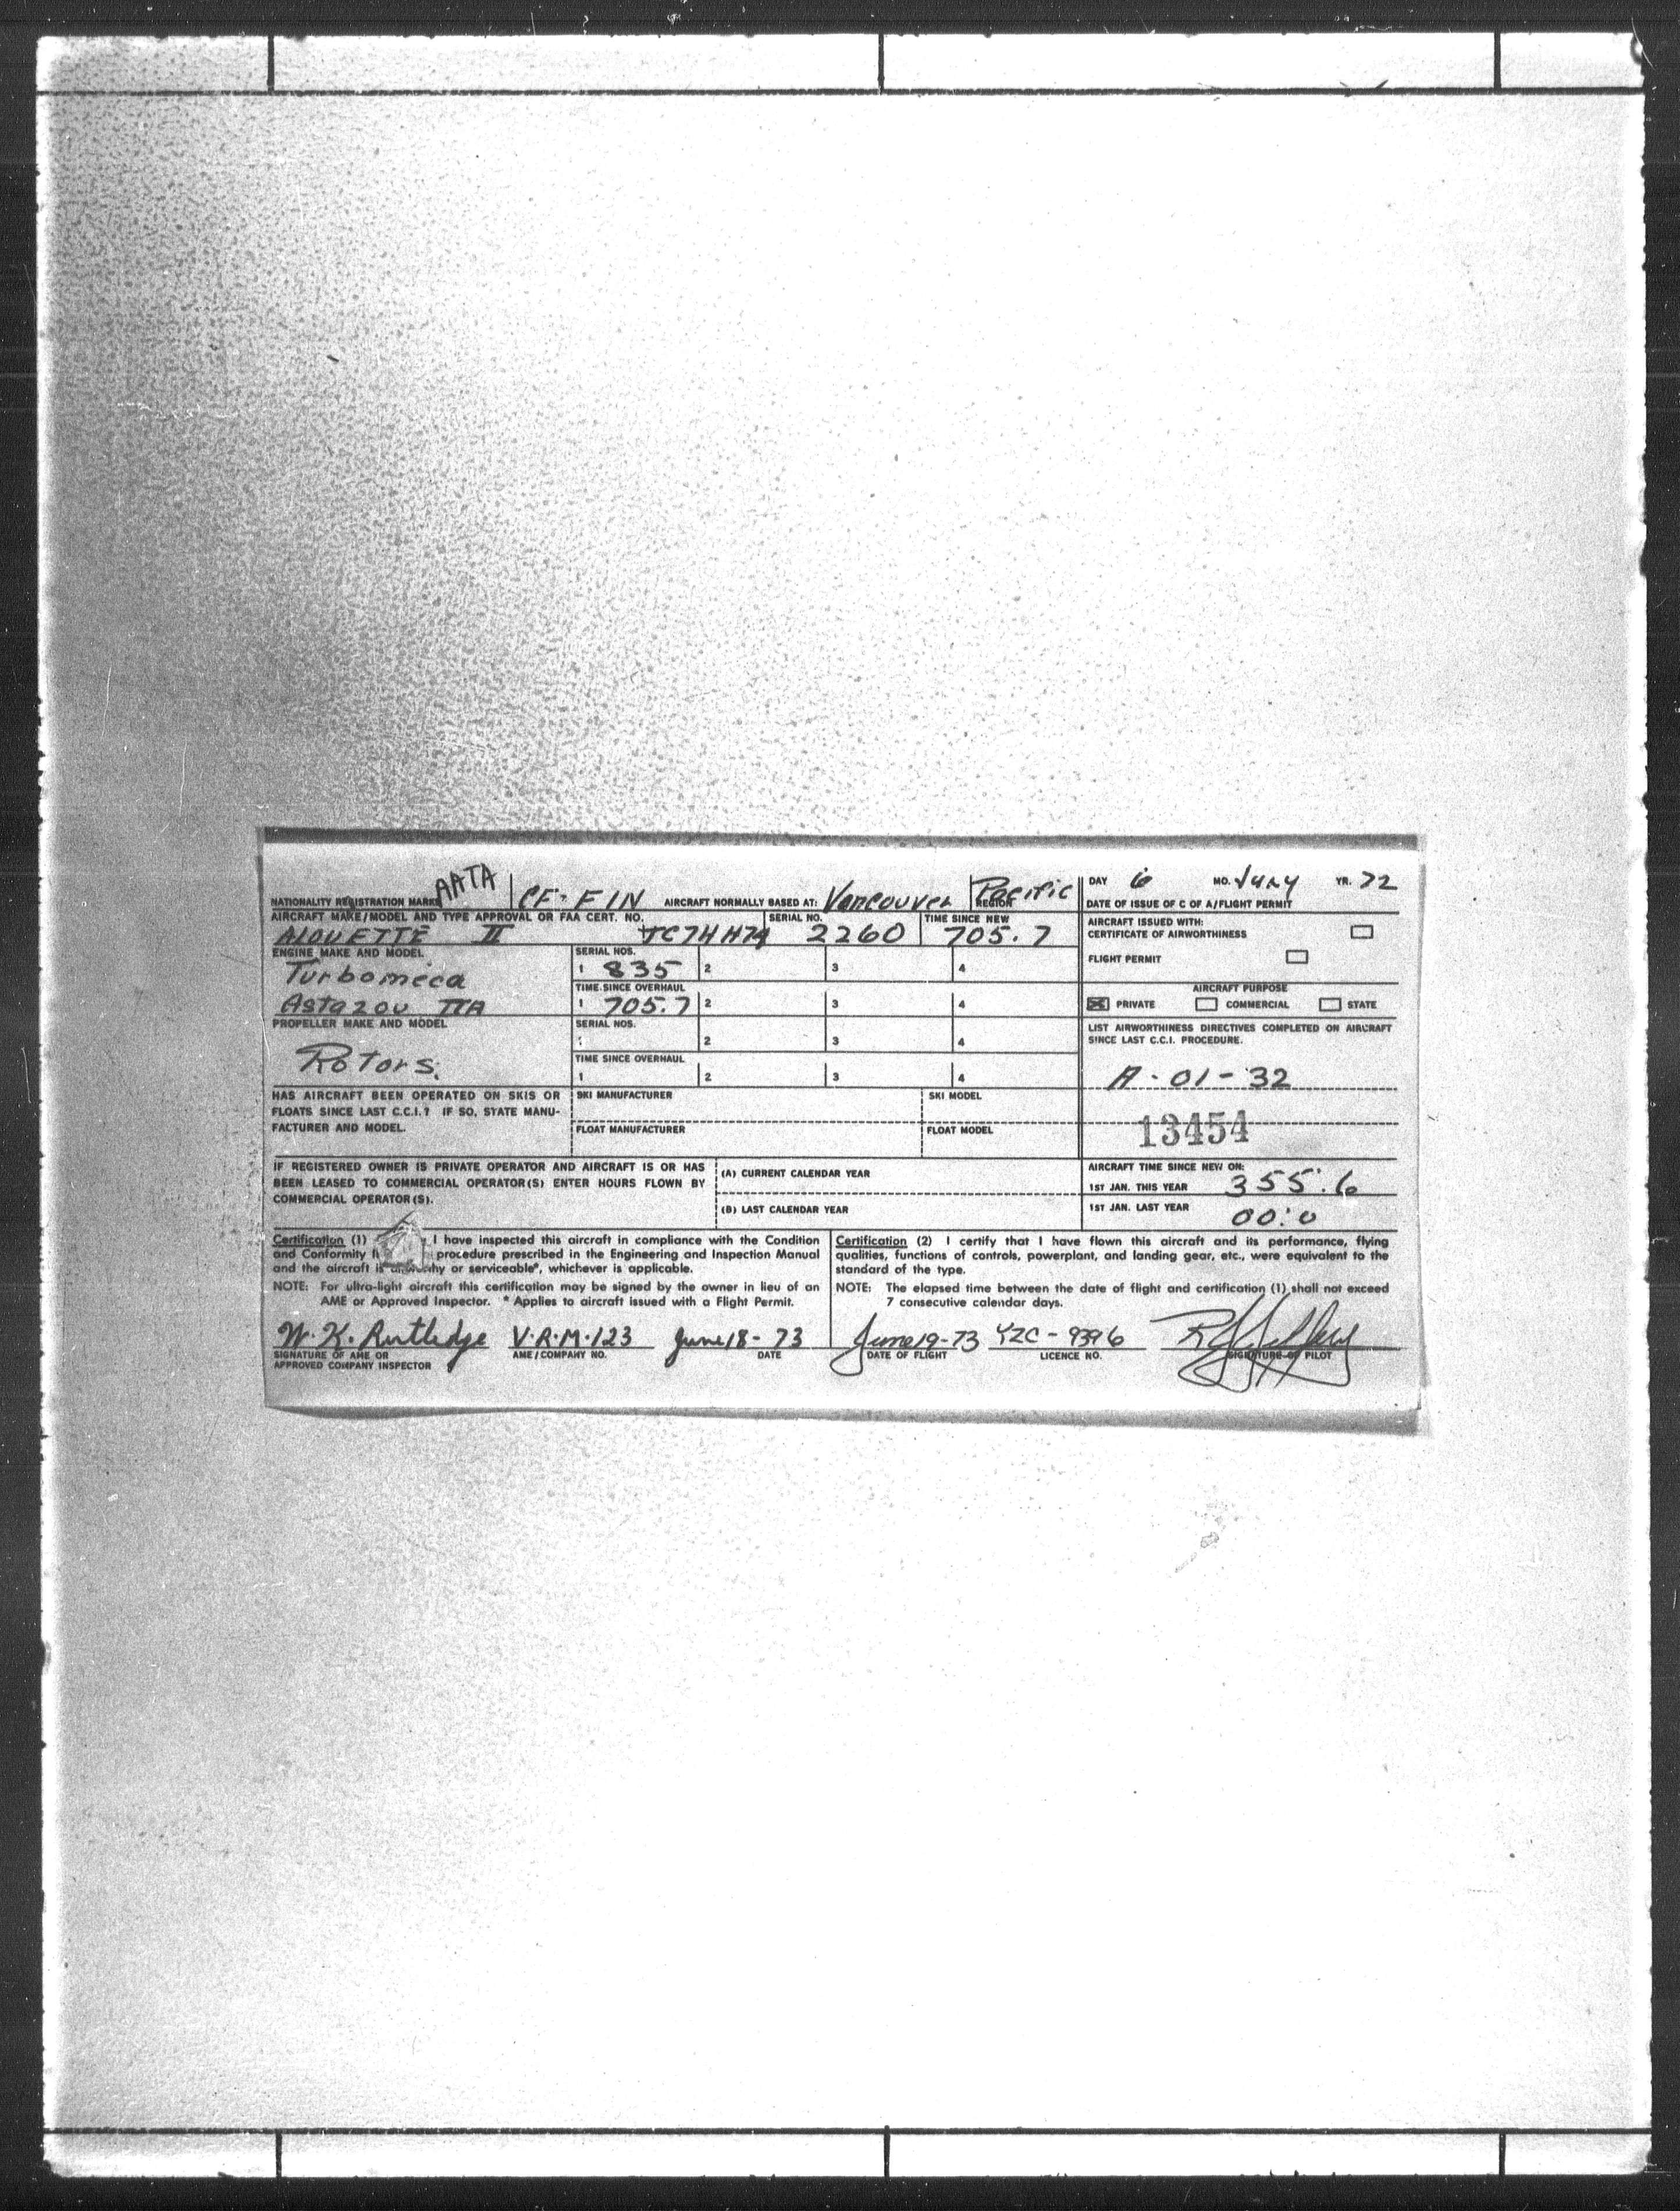 AATA
NATIONALITY REGISTRATION MARKS CF-FIN AIRCRAFT NORMALLY BASED AT: Vancouver REGION Pacific
DAY 6 MO. July YR. 72
DATE OF ISSUE OF C OF A/FLIGHT PERMIT
AIRCRAFT MAKE/MODEL AND TYPE APPROVAL OR FAA CERT. NO. SERIAL NO. TIME SINCE NEW
ALOUETTE II 2260 705.7
AIRCRAFT ISSUED WITH:
CERTIFICATE OF AIRWORTHINESS
FLIGHT PERMIT
ENGINE MAKE AND MODEL SERIAL NOS.
Turbomeca 1 835 2 3 4
TIME SINCE OVERHAUL
Astazou IIA 1 705.7 2 3 4
AIRCRAFT PURPOSE
PRIVATE COMMERCIAL STATE
PROPELLER MAKE AND MODEL SERIAL NOS.
1 2 3 4
Rotors. TIME SINCE OVERHAUL
1 2 3 4
LIST AIRWORTHINESS DIRECTIVES COMPLETED ON AIRCRAFT
SINCE LAST C.C.I. PROCEDURE.
A-01-32
13454
HAS AIRCRAFT BEEN OPERATED ON SKIS OR
FLOATS SINCE LAST C.C.I.? IF SO, STATE MANU-
FACTURER AND MODEL.
SKI MANUFACTURER SKI MODEL
FLOAT MANUFACTURER FLOAT MODEL
IF REGISTERED OWNER IS PRIVATE OPERATOR AND AIRCRAFT IS OR HAS
BEEN LEASED TO COMMERCIAL OPERATOR(S) ENTER HOURS FLOWN BY
COMMERCIAL OPERATOR(S).
(A) CURRENT CALENDAR YEAR
(B) LAST CALENDAR YEAR
AIRCRAFT TIME SINCE NEW ON:
1ST JAN. THIS YEAR 355.6
1ST JAN. LAST YEAR 00.0
Certification (1) I have inspected this aircraft in compliance with the Condition
and Conformity procedure prescribed in the Engineering and Inspection Manual
and the aircraft is airworthy or serviceable*, whichever is applicable.
NOTE: For ultra-light aircraft this certification may be signed by the owner in lieu of an
AME or Approved Inspector. * Applies to aircraft issued with a Flight Permit.
Certification (2) I certify that I have flown this aircraft and its performance, flying
qualities, functions of controls, powerplant, and landing gear, etc., were equivalent to the
standard of the type.
NOTE: The elapsed time between the date of flight and certification (1) shall not exceed
7 consecutive calendar days.
W. K. Rutledge V.R.M.123 June 18-73
SIGNATURE OF AME OR AME/COMPANY NO. DATE
APPROVED COMPANY INSPECTOR
June 19-73 YZC-9396
DATE OF FLIGHT LICENCE NO. SIGNATURE OF PILOT